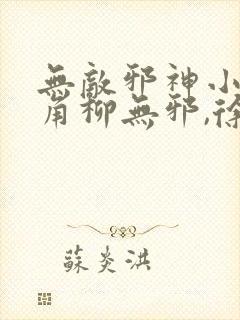 無敵邪神小
角柳無邪,徐
蘇炎洪